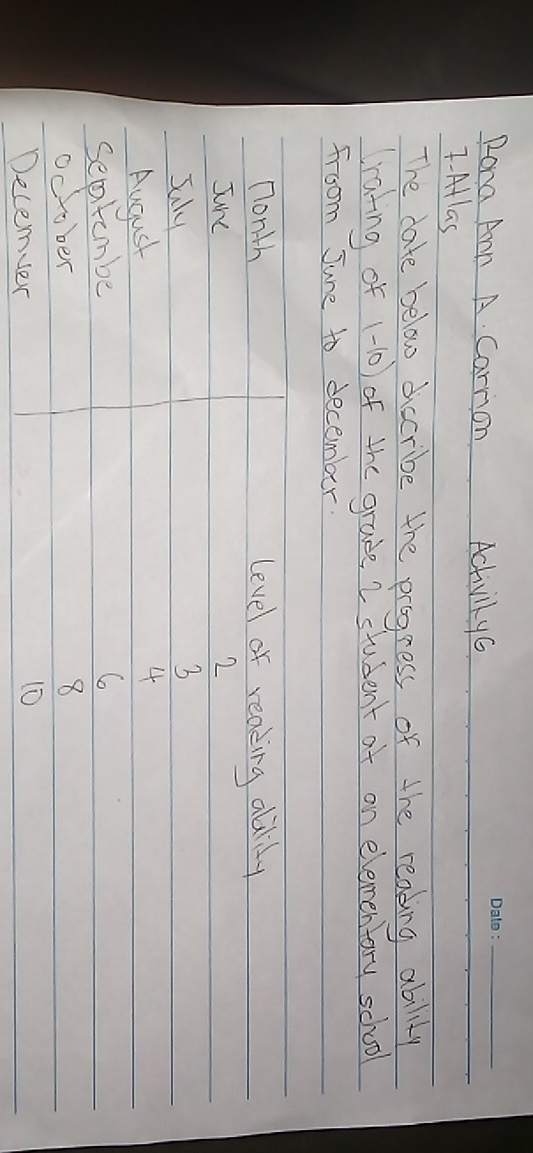 Date :
Rona Ann A. Carrion Activity 6
7-Atlas
The date below discribe the progress of the reading ability
(rating of 1-10) of the grade 2 student at an elementary school
from June to december.
Month Level of reading ability
June 2
July 3
August 4
Septembe 6
october 8
Decemver 10